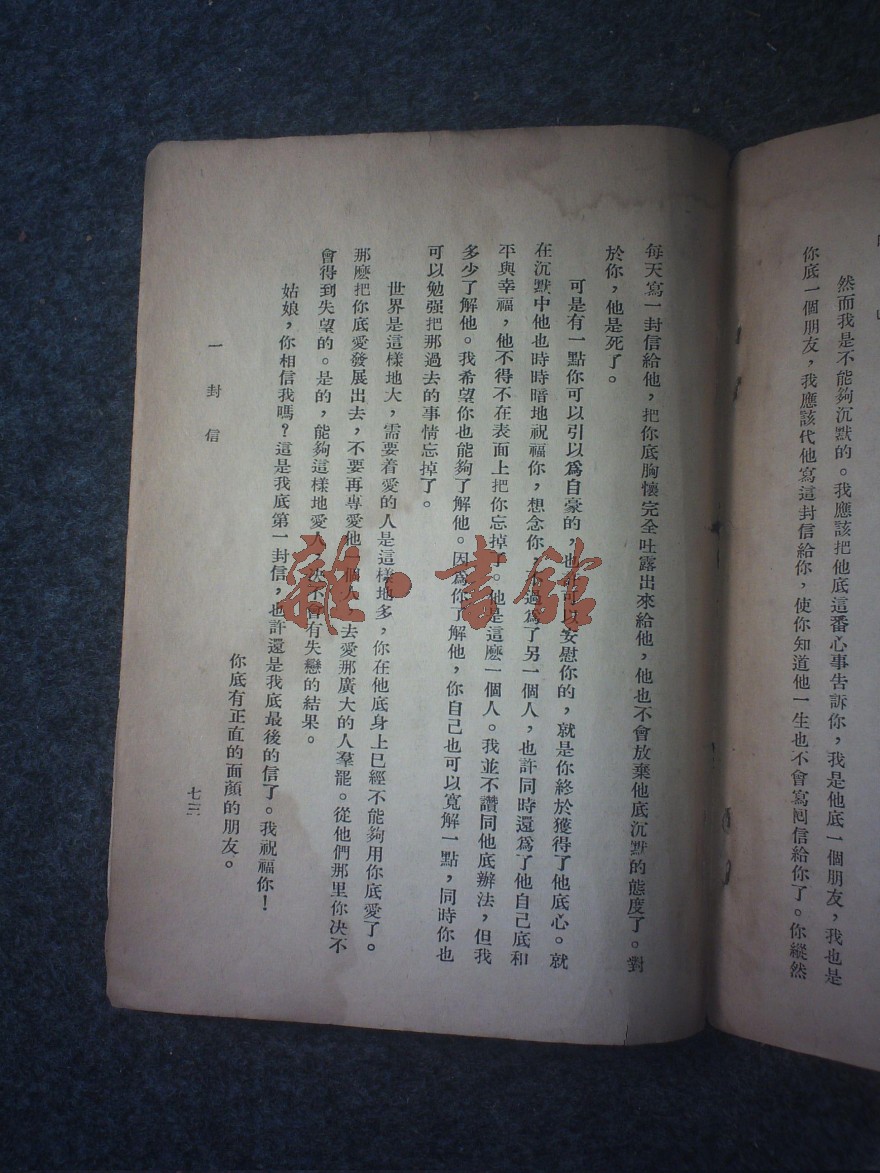 然而我是不能夠沉默的。我應該把他底這番心事告訴你，我是他底一個朋友，我也是
你底一個朋友，我應該代他寫這封信給你，使你知道他一生也不會寫囘信給你了。你縱然
每天寫一封信給他，把你底胸懷完全吐露出來給他，他也不會放棄他底沉默的態度了。對
於你，他是死了。
可是有一點你可以引以爲自豪的，也許可以安慰你的，就是你終於獲得了他底心。就
在沉默中他也時時暗地祝福你，想念你，不過爲了另一個人，也許同時還爲了他自己底和
平與幸福，他不得不在表面上把你忘掉了。他是這麼一個人。我並不讚同他底辦法，但我
多少了解他。我希望你也能夠了解他。因爲你了解他，你自己也可以寬解一點，同時你也
可以勉强把那過去的事情忘掉了。
世界是這樣地大，需要着愛的人是這樣地多，你在他底身上已經不能夠用你底愛了。
那麽把你底愛發展出去，不要再專愛他一個人，去愛那廣大的人羣罷。從他們那里你決不
會得到失望的。是的，能夠這樣地愛人，決不會有失戀的結果。
姑娘，你相信我嗎？這是我底第一封信，也許還是我底最後的信了。我祝福你！
你底有正直的面顏的朋友。
一封信
七三
雜·書館